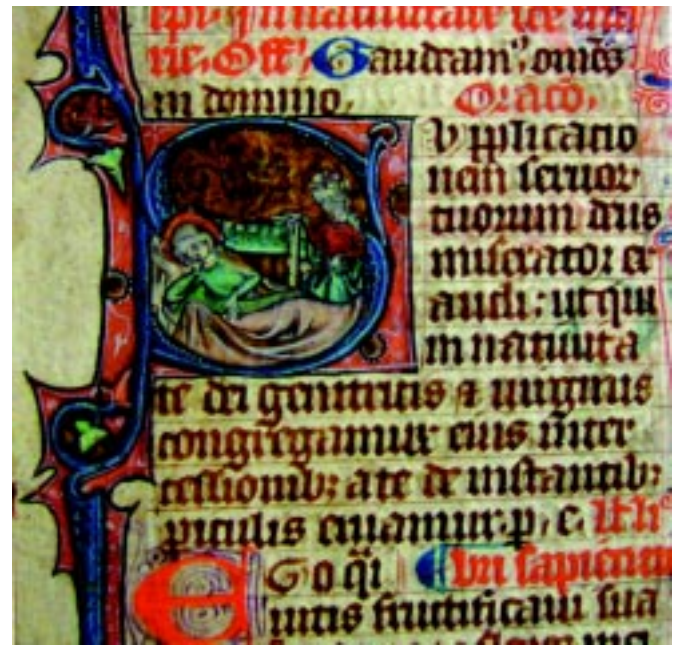 in natiuitate sce ma
rie. Off. Gaudeam⁹ om̄s
in domino. Oracō.
Supplicatio
nem seruor
tuorum deus
miserator ex
audi: ut qui
in natiuita
te dei genitricis et uirginis
congregamur eius inter
cessionib; a te de instantib;
piculis eruamur. p. e.
Ego q̄i Libri sapientie
uitis fructificaui sua